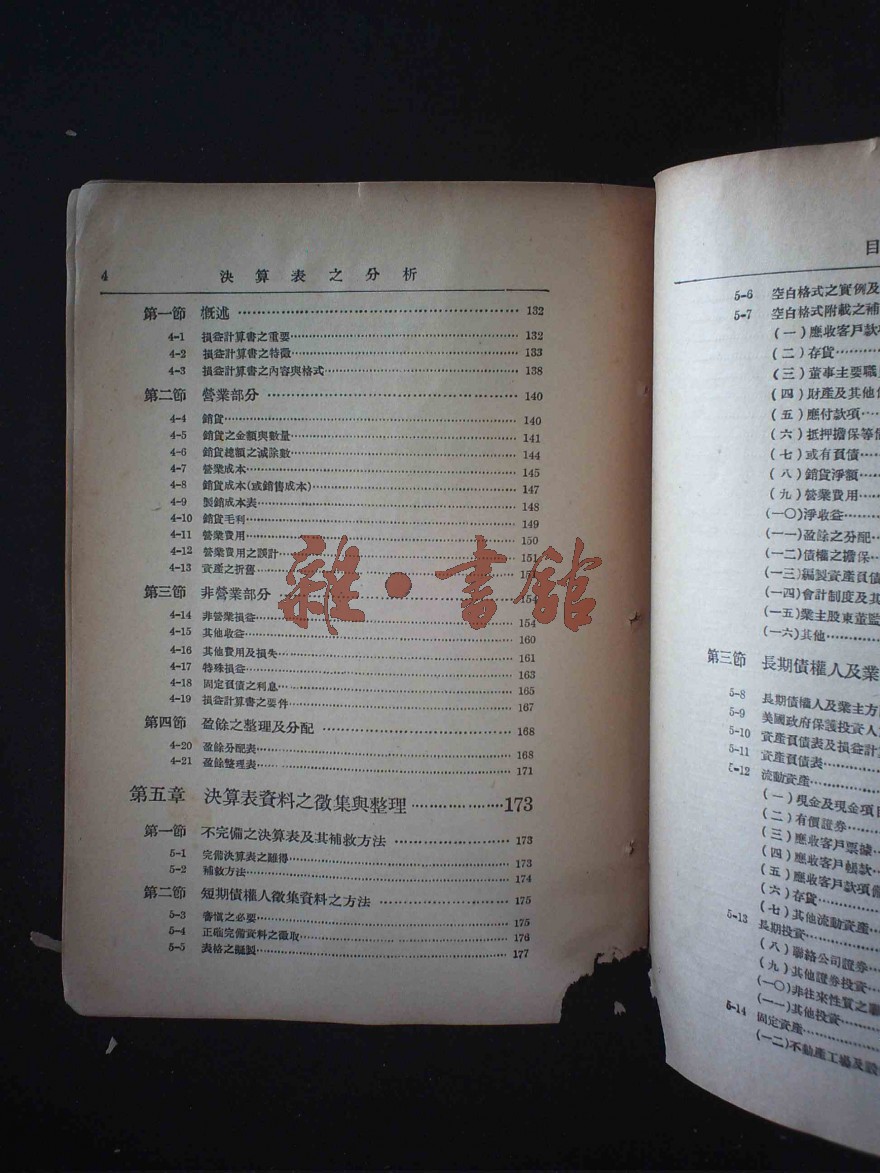 4 決算表之分析
第一節 概述 132
4-1 損益計算書之重要 132
4-2 損益計算書之特徵 133
4-3 損益計算書之內容與格式 138
第二節 營業部分 140
4-4 銷貨 140
4-5 銷貨之金額與數量 141
4-6 銷貨總額之減除數 144
4-7 營業成本 145
4-8 銷貨成本(或銷售成本) 147
4-9 製銷成本表 148
4-10 銷貨毛利 149
4-11 營業費用 150
4-12 營業費用之誤計 151
4-13 資產之折舊
第三節 非營業部分 154
4-14 非營業損益 154
4-15 其他收益 160
4-16 其他費用及損失 161
4-17 特殊損益 163
4-18 固定負債之利息 165
4-19 損益計算書之要件 167
第四節 盈餘之整理及分配 168
4-20 盈餘分配表 168
4-21 盈餘整理表 171
第五章 決算表資料之徵集與整理 173
第一節 不完備之決算表及其補救方法 173
5-1 完備決算表之難得 173
5-2 補救方法 174
第二節 短期債權人徵集資料之方法 175
5-3 審愼之必要 175
5-4 正確完備資料之徵取 176
5-5 表格之擬製 177
雜·書館
目
5-6 空白格式之實例及
5-7 空白格式附載之補
(一)應收客戶款項
(二)存貨
(三)董事主要職
(四)財產及其他
(五)應付款項
(六)抵押擔保等
(七)或有負債
(八)銷貨淨額
(九)營業費用
(一〇)淨收益
(一一)盈餘之分配
(一二)債權之擔保
(一三)編製資產負債
(一四)會計制度及其
(一五)業主股東董監
(一六)其他
第三節 長期債權人及業
5-8 長期債權人及業主方
5-9 美國政府保護投資人
5-10 資產負債表及損益計
5-11 資產負債表
5-12 流動資產
(一)現金及現金項目
(二)有價證券
(三)應收客戶票據
(四)應收客戶帳款
(五)應收客戶款項備
(六)存貨
(七)其他流動資產
5-13 長期投資
(八)聯絡公司證券
(九)其他證券投資
(一〇)非往來性質之聯
(一一)其他投資
5-14 固定資產
(一二)不動產工場及設